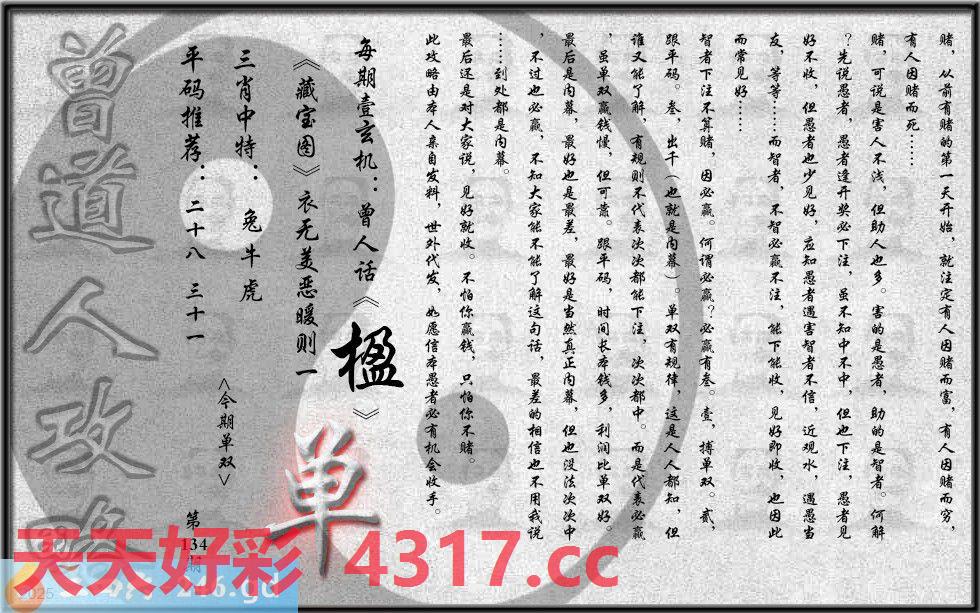 赌，从前有赌的第一天开始，就注定有人因赌而富，有人因赌而穷，
有人因赌而死……
赌，可说是害人不浅，但助人也多。害的是愚者，助的是智者。何解
？先说愚者，愚者逢开奖必下注，虽不知中不中，但也下注，愚者见
好不收，但愚者也少见好，应知愚者遇害智者不信，近观水，遇愚当
友，等等……而智者，不智必赢不注，能下能收，见好即收，也因此
而常见好……
智者下注不算赌，因必赢。何谓必赢？必赢有叁。壹，搏单双。贰，
跟平码。叁，出千（也就是内幕）。单双有规律，这是人人都知，但
谁又能了解，有规则不代表次次都能下注，次次都中。而是代表必赢
，虽单双赢钱慢，但可靠。跟平码，时间长本钱多，利润比单双好。
最后是内幕，最好也是最差，最好是当然真正内幕，但也没法次次中
，不过也必赢，不知大家能不能了解这句话，最差的相信也不用我说
……到处都是内幕。
最后还是对大家说，见好就收。不怕你赢钱，只怕你不赌。
此攻略由本人亲自发料，世外代发，如愿信本愚者必有机会收手。
每期壹玄机：曾人话《楹》
《藏宝图》衣无美恶暖则一
单
三肖中特：兔牛虎
<今期单双>
平码推荐：二十八 三十一
第
134
期
曾道人攻略
天天好彩 4317.cc
2025